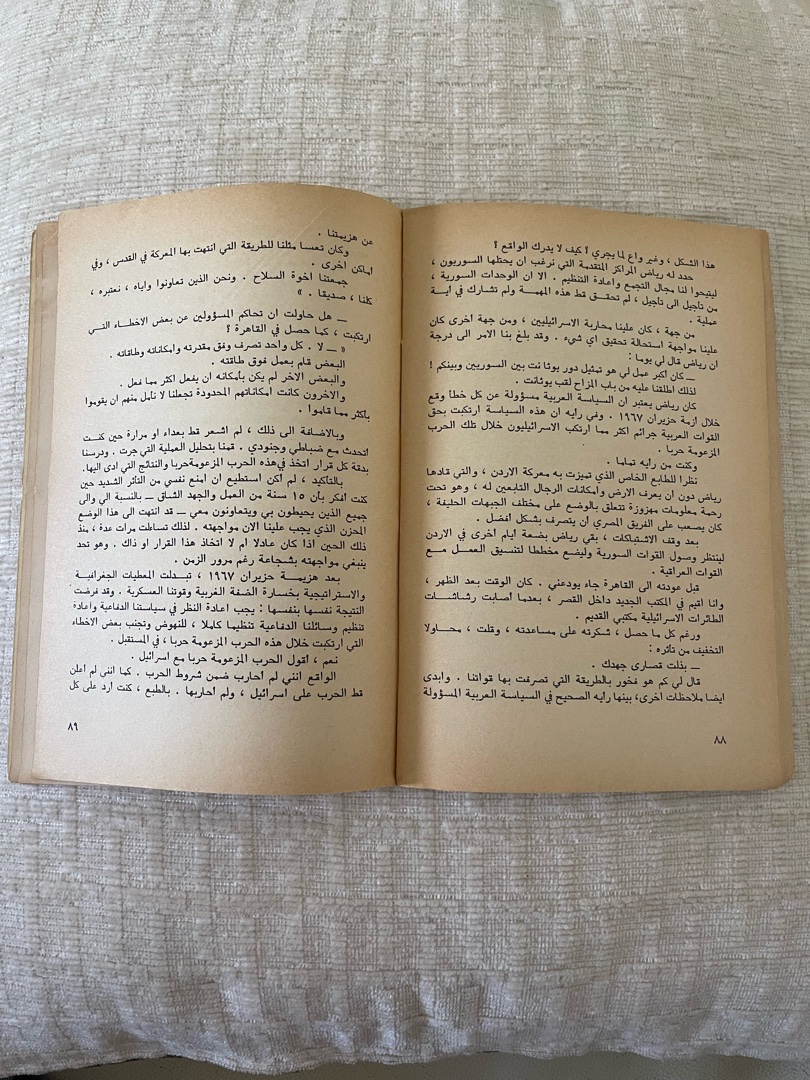 هذا الشكل ، وغير واع لما يجري ؟ كيف لا يدرك الواقع ؟
حدد له رياض المراكز المتقدمة التي نرغب ان يحتلها السوريون ،
ليتيحوا لنا مجال التجمع واعادة التنظيم . الا ان الوحدات السورية ،
من تأجيل الى تأجيل ، لم تحقق قط هذه المهمة ولم تشارك في أية
عملية .
من جهة ، كان علينا محاربة الاسرائيليين ، ومن جهة اخرى كان
علينا مواجهة استحالة تحقيق اي شيء . وقد بلغ بنا الامر الى درجة
ان رياض قال لي يوما :
ـــ كان أكبر عمل لي هو تمثيل دور يوثانت بين السوريين وبينكم !
لذلك اطلقنا عليه من باب المزاح لقب يوثانت .
كان رياض يعتبر ان السياسة العربية مسؤولة عن كل خطأ وقع
خلال ازمة حزيران ١٩٦٧ . وفي رايه ان هذه السياسة ارتكبت بحق
القوات العربية جرائم اكثر مما ارتكب الاسرائيليون خلال تلك الحرب
المزعومة حربا .
وكنت من رايه تماما .
نظرا للطابع الخاص الذي تميزت به معركة الاردن ، والتي قادها
رياض دون ان يعرف الارض وامكانات الرجال التابعين له ، وهو تحت
رحمة معلومات مهزوزة تتعلق بالوضع على مختلف الجبهات الحليفة ،
كان يصعب على الفريق المصري أن يتصرف بشكل افضل .
بعد وقف الاشتباكات ، بقي رياض بضعة أيام أخرى في الاردن
لينتظر وصول القوات السورية وليضع مخططا لتنسيق العمل مع
القوات العراقية .
قبل عودته الى القاهرة جاء يودعني . كان الوقت بعد الظهر ،
وانا اقيم في المكتب الجديد داخل القصر ، بعدما أصابت رشاشات
الطائرات الاسرائيلية مكتبي القديم .
ورغم كل ما حصل ، شكرته على مساعدته ، وقلت ، محاولا
التخفيف من تأثره :
ـــ بذلت قصارى جهدك .
قال لي كم هو فخور بالطريقة التي تصرفت بها قواتنا . وابدى
ايضا ملاحظات اخرى، بينها رايه الصحيح في السياسة العربية المسؤولة
٨٨
عن هزيمتنا .
وكان تعسا مثلنا للطريقة التي انتهت بها المعركة في القدس ، وفي
اماكن اخرى .
جمعتنا أخوة السلاح . ونحن الذين تعاونوا واياه ، نعتبره ،
كلنا ، صديقا . »
ـــ هل حاولت ان تحاكم المسؤولين عن بعض الاخطاء التي
ارتكبت ، كما حصل في القاهرة ؟
« ـــ لا . كل واحد تصرف وفق مقدرته وامكاناته وطاقاته .
البعض قام بعمل فوق طاقته .
والبعض الاخر لم يكن بأمكانه ان يفعل اكثر مما فعل .
والاخرون كانت امكاناتهم المحدودة تجعلنا لا نأمل منهم ان يقوموا
بأكثر مما قاموا .
وبالاضافة الى ذلك ، لم اشعر قط بعداء او مرارة حين كنت
اتحدث مع ضباطي وجنودي . قمنا بتحليل العملية التي جرت . ودرسنا
بدقة كل قرار اتخذ في هذه الحرب المزعومة حربا والنتائج التي ادى اليها.
بالتأكيد ، لم أكن استطيع ان امنع نفسي من التأثر الشديد حين
كنت افكر بأن ١٥ سنة من العمل والجهد الشاق ـــ بالنسبة الي والى
جميع الذين يحيطون بي ويتعاونون معي ـــ قد انتهت الى هذا الوضع
المحزن الذي يجب علينا الان مواجهته . لذلك تساءلت مرات عدة ، منذ
ذلك الحين اذا كان عادلا ام لا اتخاذ هذا القرار او ذاك . وهو تحد
ينبغي مواجهته بشجاعة رغم مرور الزمن .
بعد هزيمة حزيران ١٩٦٧ ، تبدلت المعطيات الجغرافية
والاستراتيجية بخسارة الضفة الغربية وقوتنا العسكرية . وقد فرضت
النتيجة نفسها بنفسها : يجب اعادة النظر في سياستنا الدفاعية واعادة
تنظيم وسائلنا الدفاعية تنظيما كاملا ، للنهوض وتجنب بعض الاخطاء
التي ارتكبت خلال هذه الحرب المزعومة حربا ، في المستقبل .
نعم ، أقول الحرب المزعومة حربا مع اسرائيل .
الواقع انني لم أحارب ضمن شروط الحرب . كما انني لم أعلن
قط الحرب على اسرائيل ، ولم احاربها . بالطبع ، كنت أرد على كل
٨٩